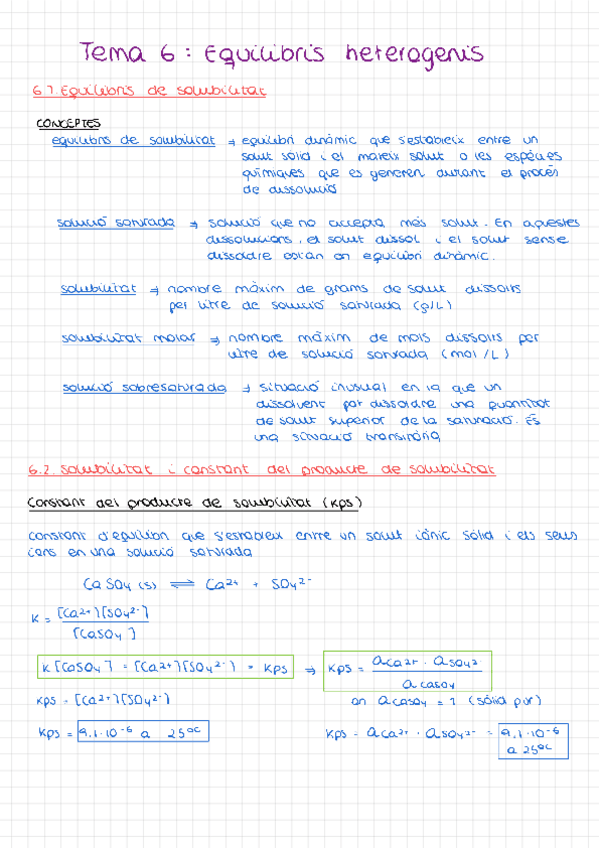 Tema 6: Equilibris heterogenis
6.1. Equilibris de solubilitat
CONCEPTES
equilibris de solubilitat → equilibri dinàmic que s'estableix entre un
solut sòlid i el mateix solut o les espècies
químiques que es generen durant el procés
de dissolució
solució saturada → solució que no accepta més solut. En aquestes
dissolucions, el solut dissol i el solut sense
dissoldre estan en equilibri dinàmic.
solubilitat → nombre màxim de grams de solut dissolts
per litre de solució saturada (g/L)
solubilitat molar → nombre màxim de mols dissolts per
litre de solució saturada (mol/L)
solució sobresaturada → situació inusual en la que un
dissolvent pot dissoldre una quantitat
de solut superior de la saturació. És
una situació transitòria
6.2. Solubilitat i constant del producte de solubilitat
Constant del producte de solubilitat (Kps)
constant d'equilibri que s'estableix entre un solut iònic sòlid i els seus
ions en una solució saturada
CaSO₄ (s) ⇌ Ca²⁺ + SO₄²⁻
K = [Ca²⁺][SO₄²⁻]
[CaSO₄]
K [CaSO₄] = [Ca²⁺][SO₄²⁻] = Kps ⇒ Kps = aCa²⁺ · aSO₄²⁻
aCaSO₄
Kps = [Ca²⁺][SO₄²⁻] on aCaSO₄ = 1 (sòlid pur)
Kps = 9,1·10⁻⁶ a 25ºC Kps = aCa²⁺ · aSO₄²⁻ = 9,1·10⁻⁶
a 25ºC